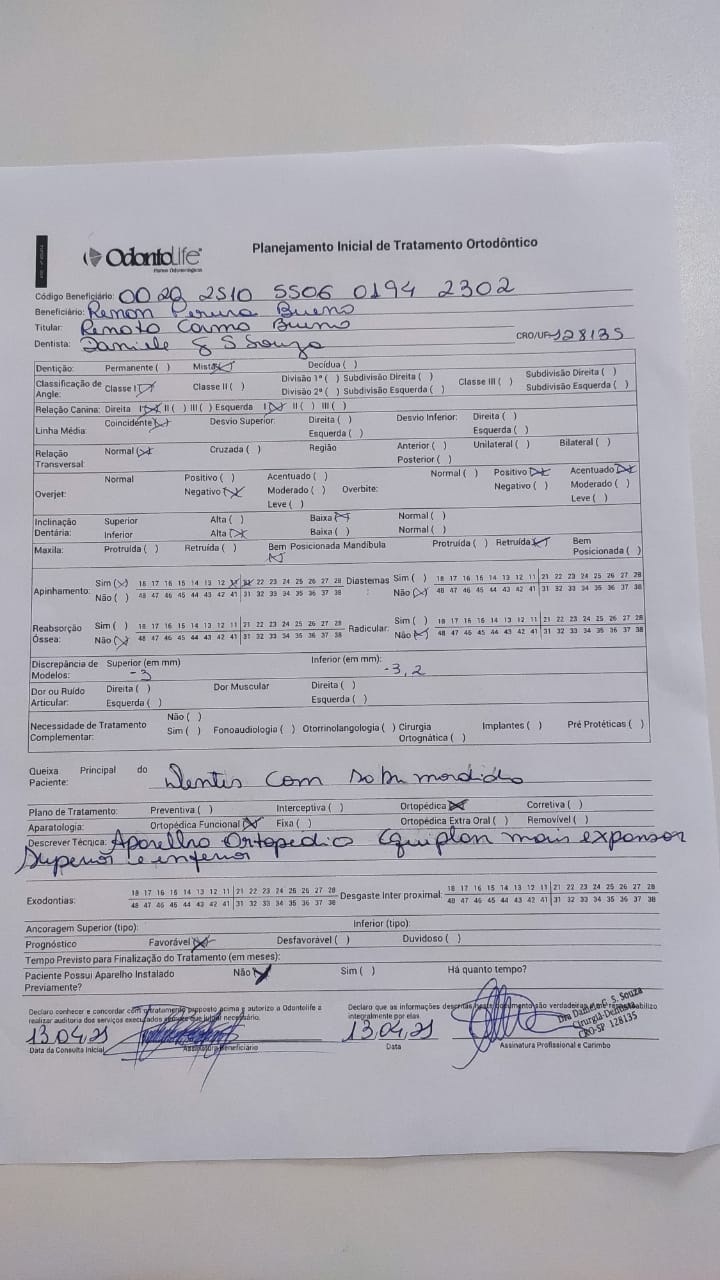 OdontoLife
Planos Odontológicos
Planejamento Inicial de Tratamento Ortodôntico
Código Beneficiário: 00 20 2510 5506 0194 2302
Beneficiário: Renan Pereira Bueno
Titular: Renato Carmo Bueno
Dentista: Daniele G S Souza CRO/UF: 128135
Dentição: Permanente ( ) Mista (X) Decídua ( )
Classificação de Angle: Classe I (X) Classe II ( ) Divisão 1ª ( ) Subdivisão Direita ( ) Classe III ( ) Subdivisão Direita ( )
Divisão 2ª ( ) Subdivisão Esquerda ( ) Subdivisão Esquerda ( )
Relação Canina: Direita I (X) II ( ) III ( ) Esquerda I (X) II ( ) III ( )
Linha Média: Coincidente (X) Desvio Superior: Direita ( ) Desvio Inferior: Direita ( )
Esquerda ( ) Esquerda ( )
Relação Transversal: Normal (X) Cruzada ( ) Região Anterior ( ) Unilateral ( ) Bilateral ( )
Posterior ( )
Overjet: Normal Positivo ( ) Acentuado ( ) Overbite: Normal ( ) Positivo (X) Acentuado (X)
Negativo (X) Moderado ( ) Negativo ( ) Moderado ( )
Leve ( ) Leve ( )
Inclinação Dentária: Superior Alta ( ) Baixa (X) Normal ( )
Inferior Alta (X) Baixa ( ) Normal ( )
Maxila: Protruída ( ) Retruída ( ) Bem Posicionada (X) Mandíbula Protruída ( ) Retruída (X) Bem Posicionada ( )
Apinhamento: Sim (X) 18 17 16 15 14 13 12 11 21 22 23 24 25 26 27 28 Diastemas: Sim ( ) 18 17 16 15 14 13 12 11 21 22 23 24 25 26 27 28
Não ( ) 48 47 46 45 44 43 42 41 31 32 33 34 35 36 37 38 Não (X) 48 47 46 45 44 43 42 41 31 32 33 34 35 36 37 38
Reabsorção Óssea: Sim ( ) 18 17 16 15 14 13 12 11 21 22 23 24 25 26 27 28 Radicular: Sim ( ) 18 17 16 15 14 13 12 11 21 22 23 24 25 26 27 28
Não (X) 48 47 46 45 44 43 42 41 31 32 33 34 35 36 37 38 Não (X) 48 47 46 45 44 43 42 41 31 32 33 34 35 36 37 38
Discrepância de Modelos: Superior (em mm) -3 Inferior (em mm): -3,2
Dor ou Ruído Articular: Direita ( ) Dor Muscular Direita ( )
Esquerda ( ) Esquerda ( )
Necessidade de Tratamento Complementar: Não ( )
Sim ( ) Fonoaudiologia ( ) Otorrinolangologia ( ) Cirurgia Ortognática ( ) Implantes ( ) Pré Protéticas ( )
Queixa Principal do Paciente: Dentes com sobu mordido
Plano de Tratamento: Preventiva ( ) Interceptiva ( ) Ortopédica (X) Corretiva ( )
Aparatologia: Ortopédica Funcional (X) Fixa ( ) Ortopédica Extra Oral ( ) Removível ( )
Descrever Técnica: Aparelho Ortopedio Equiplan mais expansor
Superior e inferior
Exodontias: 18 17 16 15 14 13 12 11 21 22 23 24 25 26 27 28 Desgaste Inter proximal: 18 17 16 15 14 13 12 11 21 22 23 24 25 26 27 28
48 47 46 45 44 43 42 41 31 32 33 34 35 36 37 38 48 47 46 45 44 43 42 41 31 32 33 34 35 36 37 38
Ancoragem Superior (tipo): Inferior (tipo):
Prognóstico Favorável (X) Desfavorável ( ) Duvidoso ( )
Tempo Previsto para Finalização do Tratamento (em meses):
Paciente Possui Aparelho Instalado Previamente? Não (X) Sim ( ) Há quanto tempo?
Declaro conhecer e concordar com o tratamento proposto acima e autorizo a Odontolife a realizar auditoria dos serviços executados
Declaro que as informações descritas neste documento são verdadeiras integralmente por elas
13.04.21 13,04,21
Data da Consulta Inicial Assinatura Beneficiário Data Assinatura Profissional e Carimbo
Dra Daniele G. S. Souza
Cirurgiã-Dentista
CRO-SP 128135